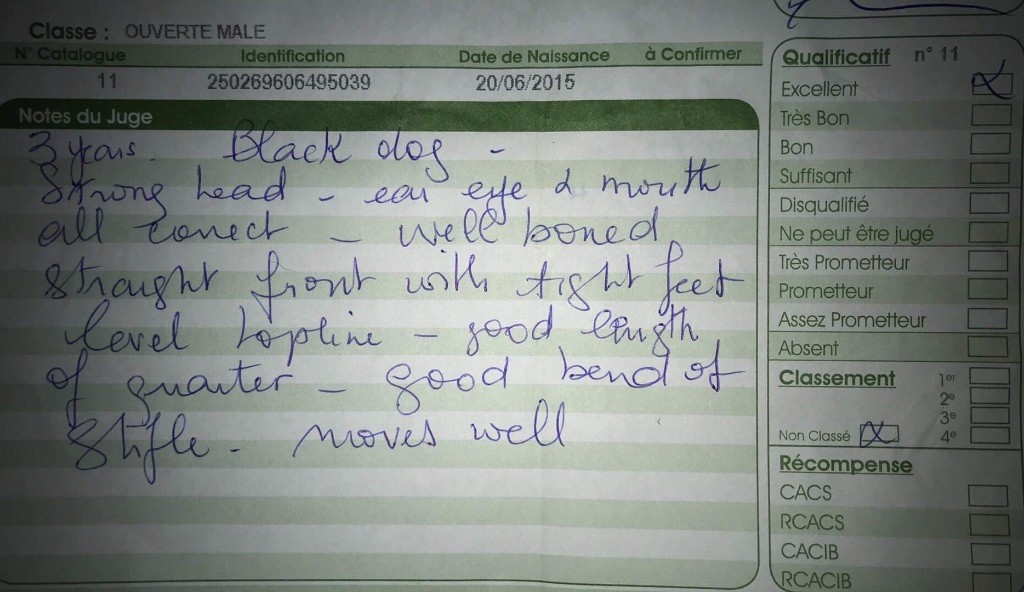 Classe : OUVERTE MALE
N° Catalogue Identification Date de Naissance à Confirmer
11 250269606495039 20/06/2015
Notes du Juge
3 years. Black dog -
Strong head - ear eye & mouth
all correct - well boned
straight front with tight feet
level topline - good length
of quarter - good bend of
stifle - moves well
Qualificatif n° 11
Excellent
Très Bon
Bon
Suffisant
Disqualifié
Ne peut être jugé
Très Prometteur
Prometteur
Assez Prometteur
Absent
Classement 1er
2e
3e
Non Classé 4e
Récompense
CACS
RCACS
CACIB
RCACIB